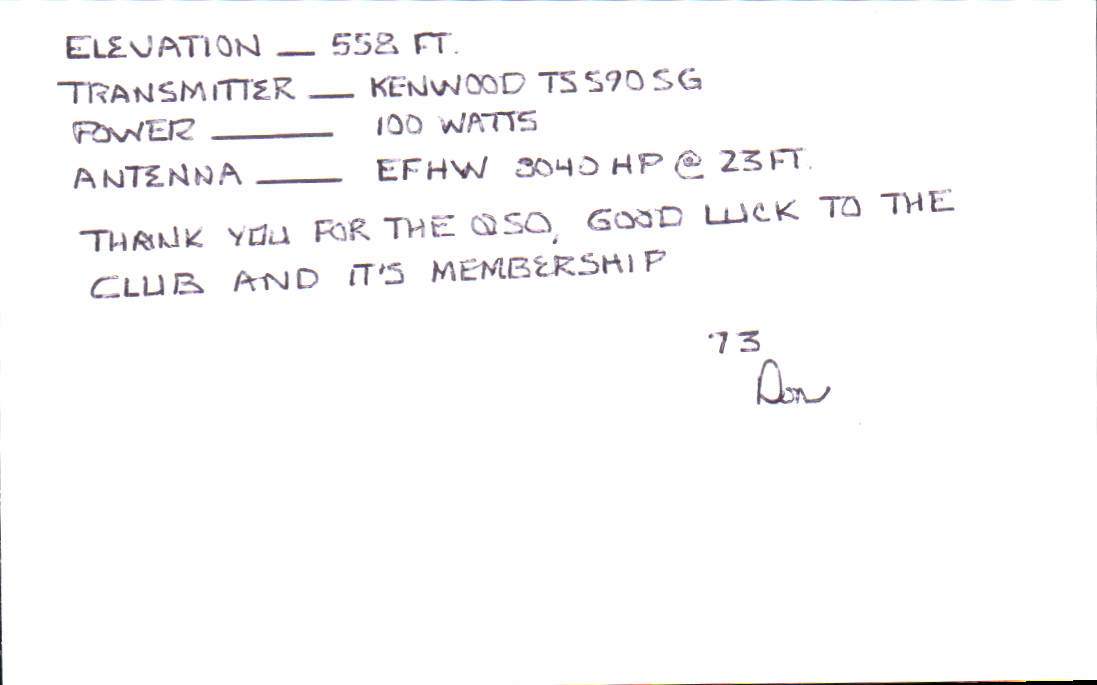 ELEVATION — 558 FT.
TRANSMITTER — KENWOOD TS590SG
POWER — 100 WATTS
ANTENNA — EFHW 8040 HP @ 23 FT.
THANK YOU FOR THE QSO, GOOD LUCK TO THE
CLUB AND IT'S MEMBERSHIP
'73
Don